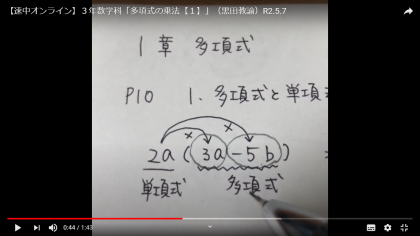 【速中オンライン】３年数学科「多項式の乗法【１】」（黒田教諭）R2.5.7
1章 多項式
P10 1. 多項式と単項
× ×
2a(3a-5b)
単項式 多項式
0:44 / 1:43